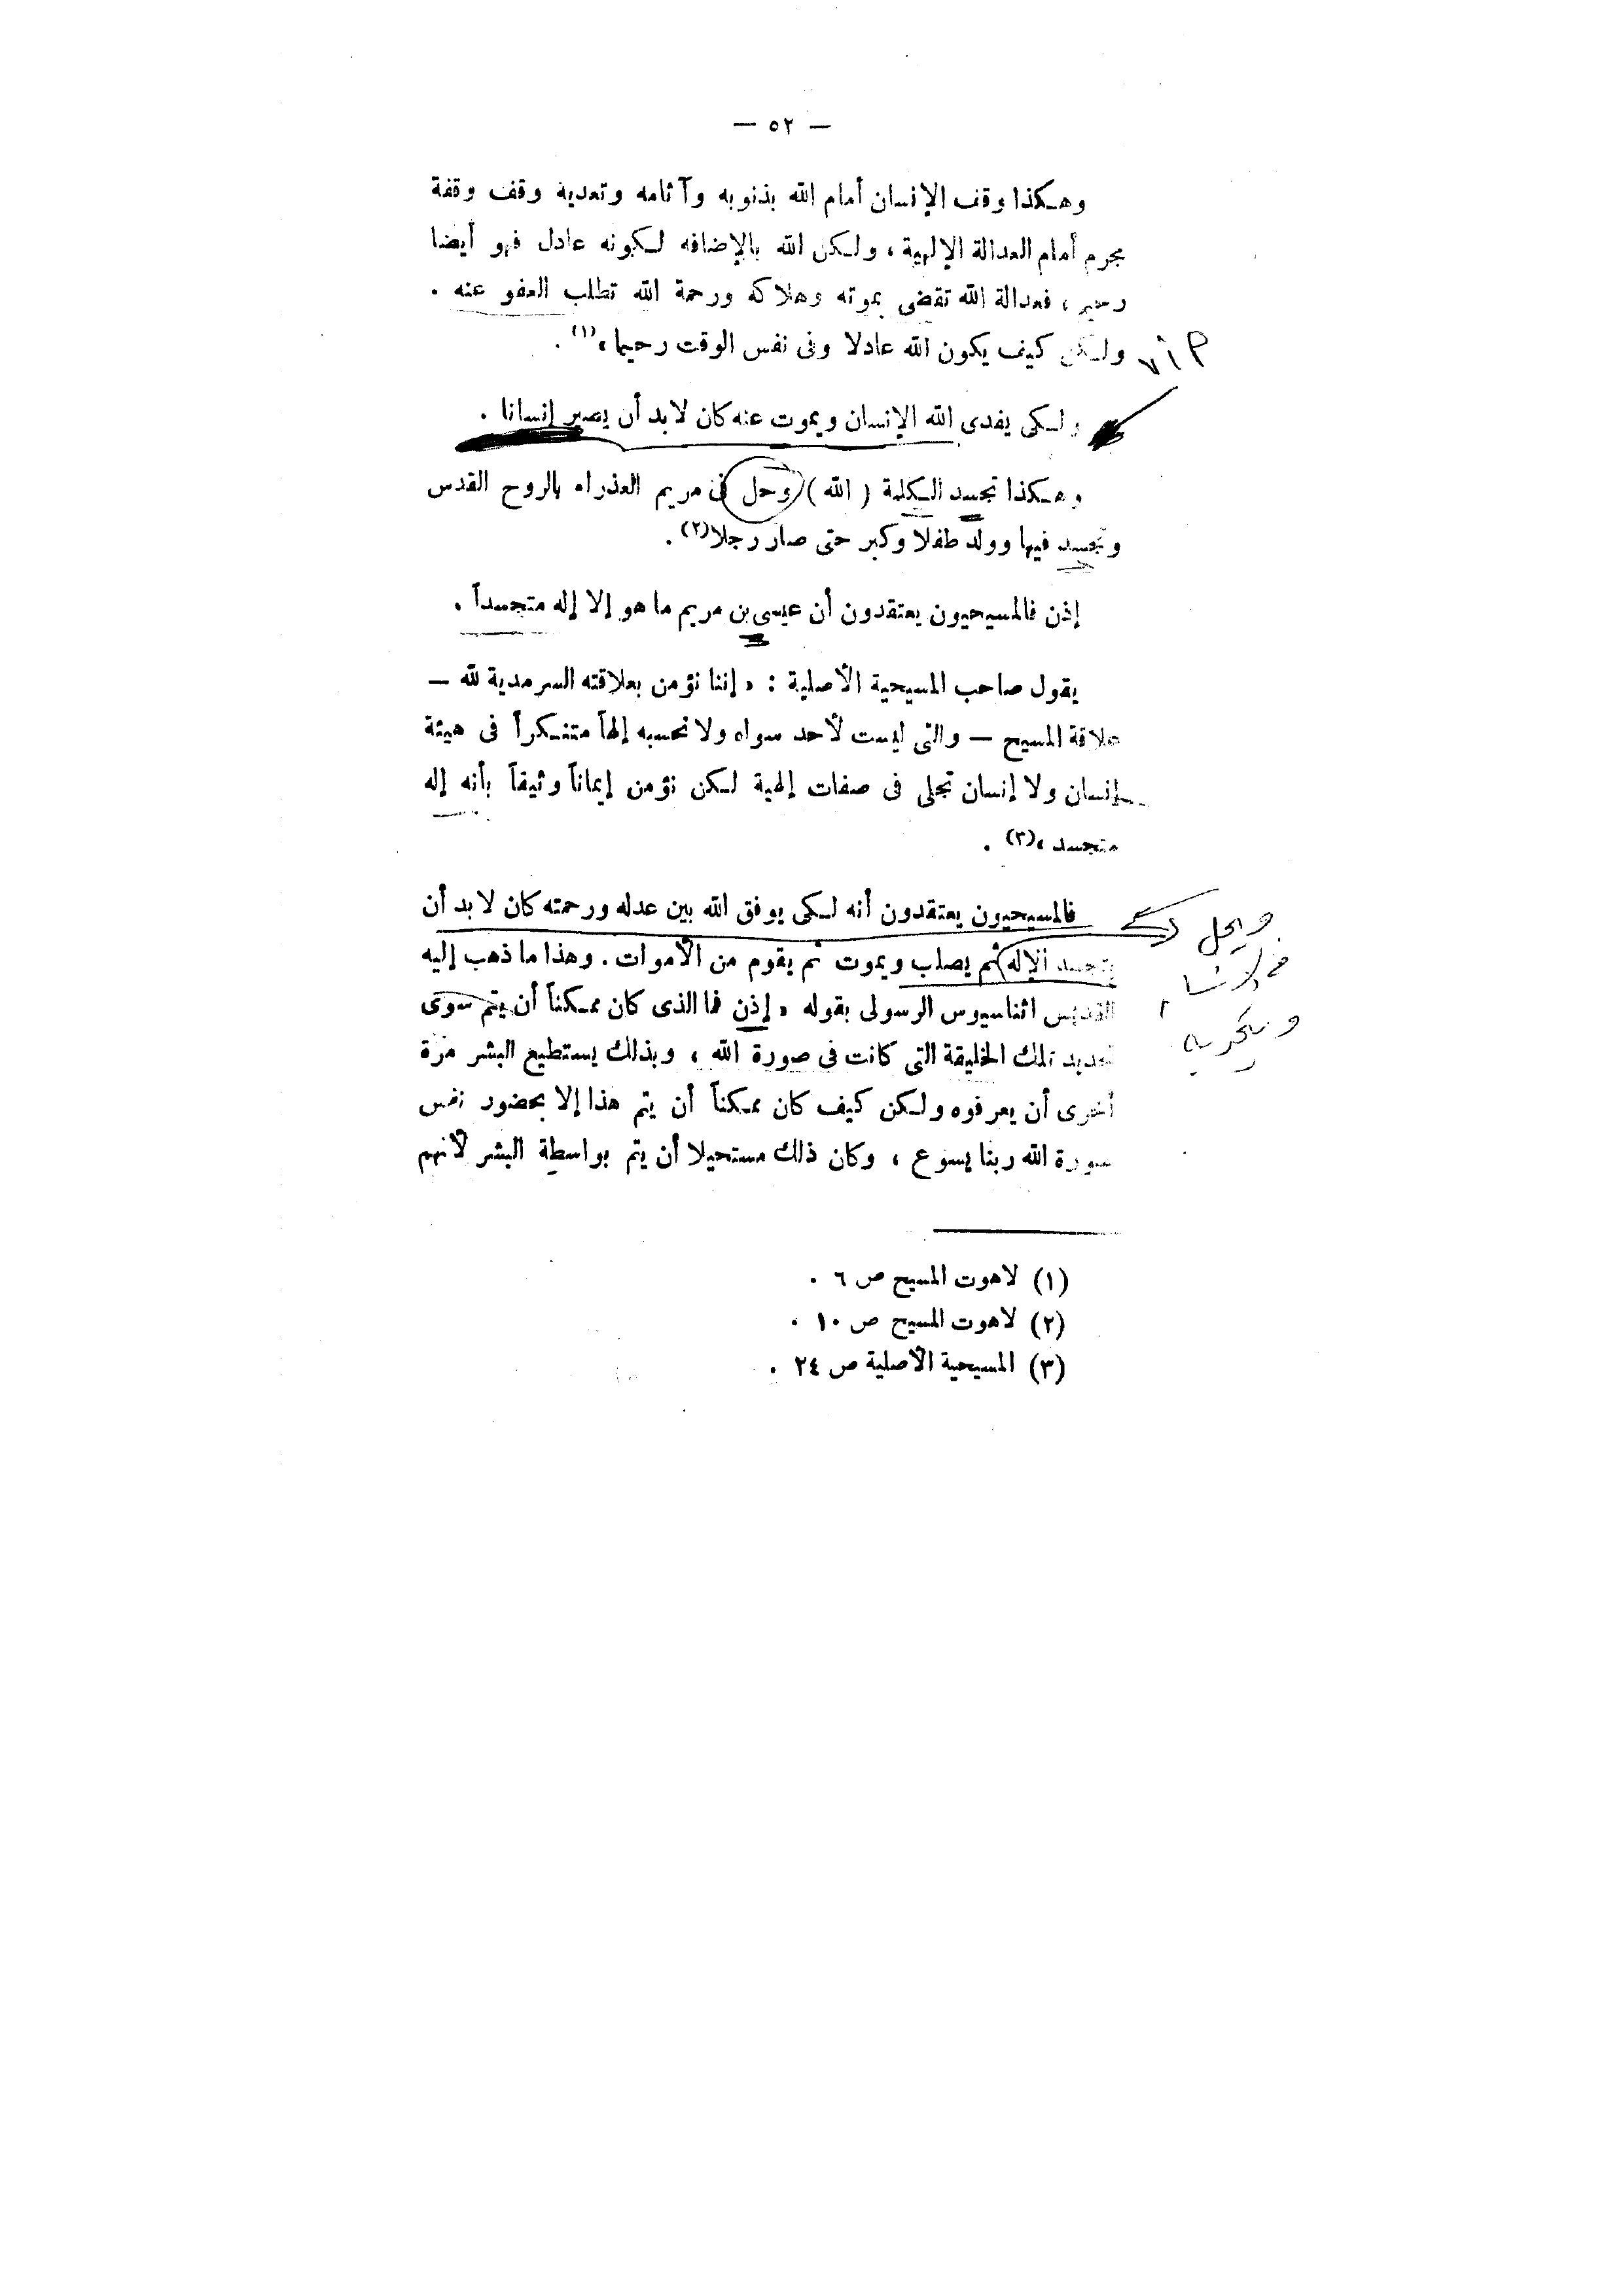 — ٥٢ —
وهكذا وقف الإنسان أمام الله بذنوبه وآثامه وتعدية وقف وقفة
مجرم أمام العدالة الإلهية ، ولكن الله بالإضافه لكونه عادل فهو أيضا
رحيم ، فعدالة الله تقضى بموته وهلاكه ورحمة الله تطلب العفو عنه .
ولكن كيف يكون الله عادلا وفى نفس الوقت رحيما ،(١) .
vip
ولكى يفدى الله الإنسان ويموت عنه كان لابد أن يصير إنسانا .
وهكذا تجسد الكلمة ( الله ) وحل فى مريم العذراء بالروح القدس
وتجسد فيها وولد طفلا وكبر حتى صار رجلا(٢) .
إذن فالمسيحيون يعتقدون أن عيسى بن مريم ما هو إلا إله متجسداً .
يقول صاحب المسيحية الأصلية : « إننا نؤمن بعلاقته السرمدية لله —
علاقة المسيح — والتى ليست لأحد سواه ولا نحسبه إلهاً متنكراً فى هيئة
إنسان ولا إنسان تجلى فى صفات إلهية لكن نؤمن إيماناً وثيقاً بأنه إله
متجسد ،(٣) .
فالمسيحيون يعتقدون أنه لكى يوفق الله بين عدله ورحمته كان لابد أن
يتجسد الإله ثم يصلب ويموت ثم يقوم من الأموات . وهذا ما ذهب إليه
القديس اثناسيوس الرسولى بقوله « إذن فما الذى كان ممكناً أن يتم سوى
تجديد تلك الخليقة التى كانت فى صورة الله ، وبذلك يستطيع البشر مرة
أخرى أن يعرفوه ولكن كيف كان ممكناً أن يتم هذا إلا بحضور نفس
صورة الله ربنا يسوع ، وكان ذلك مستحيلا أن يتم بواسطة البشر لأنهم
ويحل
(١) لاهوت المسيح ص ٦ .
(٢) لاهوت المسيح ص ١٠ .
(٣) المسيحية الأصلية ص ٢٤ .